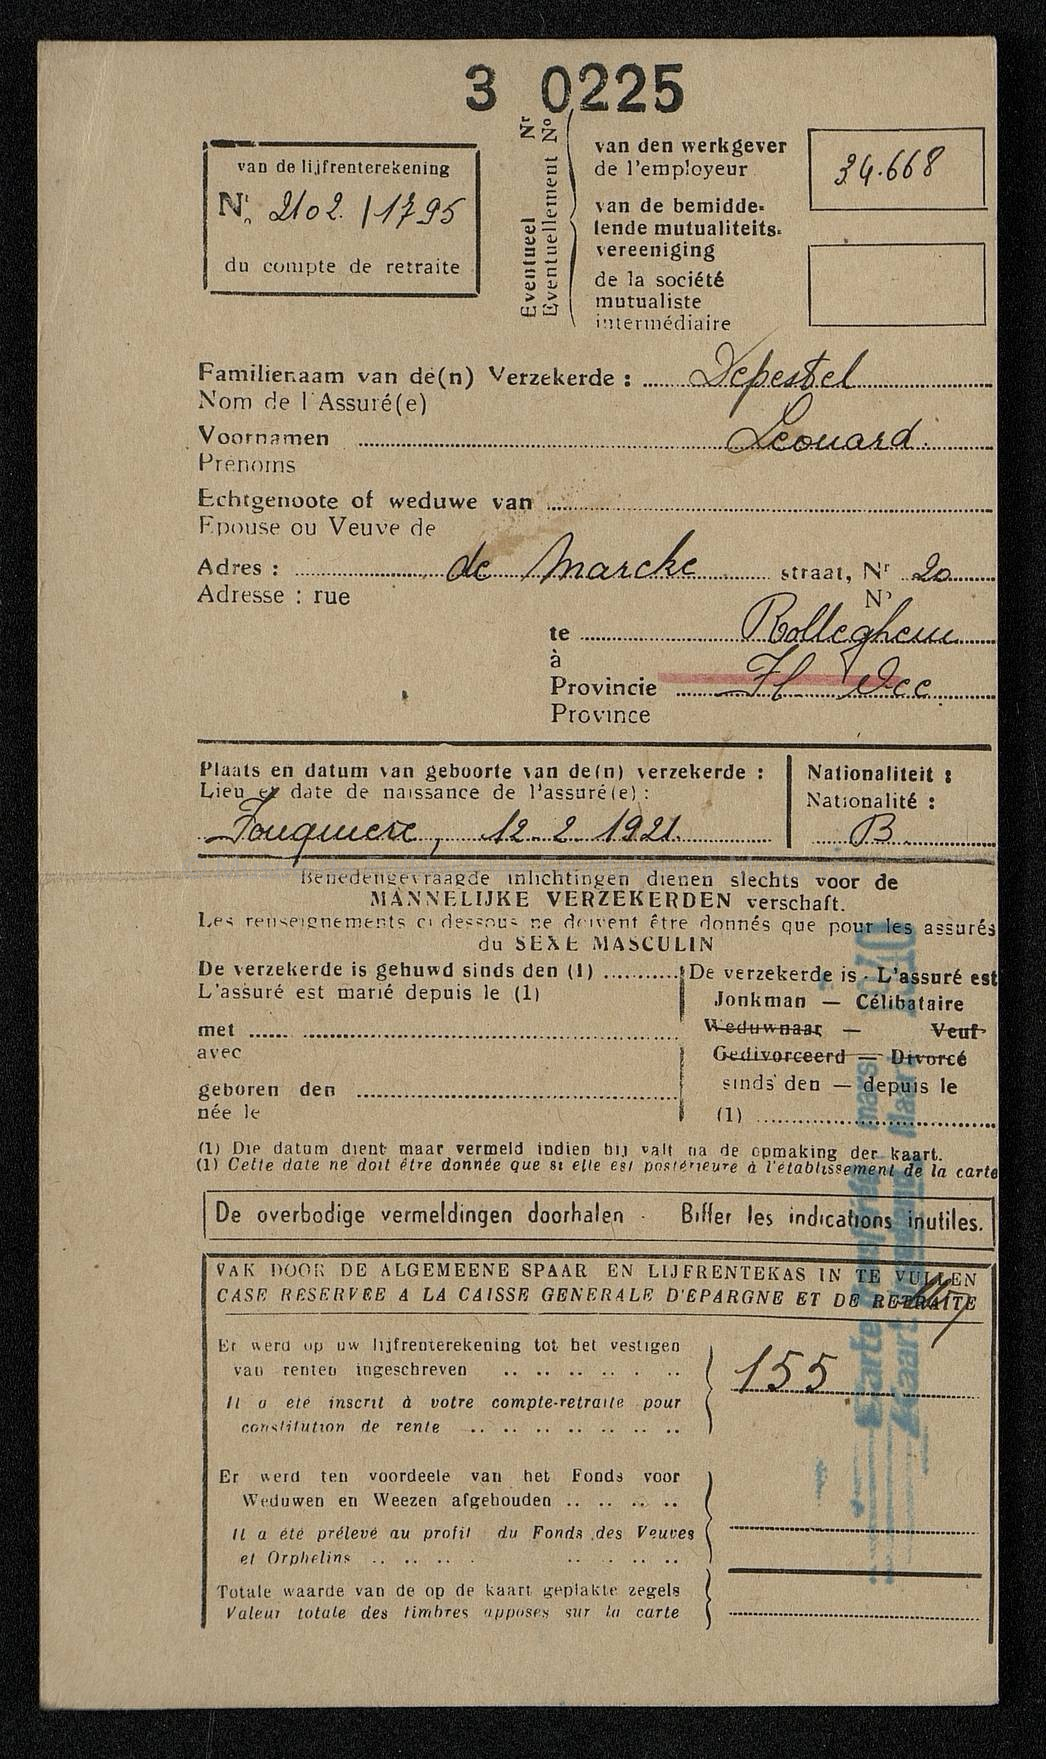 3 0225
van de lijfrenterekening
Nr. 2102. | 1795
du compte de retraite
Eventueel Nr
Eventuellement No
van den werkgever
de l'employeur
34.668
van de bemidde-
lende mutualiteits-
vereeniging
de la société
mutualiste
intermédiaire
Familienaam van de(n) Verzekerde : Depestel
Nom de l'Assuré(e)
Voornamen Leonard.
Prénoms
Echtgenoote of weduwe van
Epouse ou Veuve de
Adres : de Marcke straat, Nr 20
Adresse : rue No
te Rolleghem
à
Provincie Fl Occ.
Province
Plaats en datum van geboorte van de(n) verzekerde :
Lieu et date de naissance de l'assuré(e) :
Fouquiere, 12-2 1921.
Nationaliteit :
Nationalité :
B
Benedengevraagde inlichtingen dienen slechts voor de
MANNELIJKE VERZEKERDEN verschaft.
Les renseignements ci dessous ne doivent être donnés que pour les assurés
du SEXE MASCULIN
De verzekerde is gehuwd sinds den (1)
L'assuré est marié depuis le (1)
met
avec
geboren den
née le
De verzekerde is - L'assuré est
Jonkman — Célibataire
Weduwnaar — Veuf
Gedivorceerd — Divorcé
sinds den — depuis le
(1)
(1) Die datum dient maar vermeld indien hij valt na de opmaking der kaart.
(1) Cette date ne doit être donnée que si elle est postérieure à l'établissement de la carte
De overbodige vermeldingen doorhalen - Biffer les indications inutiles.
VAK DOOR DE ALGEMEENE SPAAR EN LIJFRENTEKAS IN TE VULLEN
CASE RESERVEE A LA CAISSE GENERALE D'EPARGNE ET DE RETRAITE
Er werd op uw lijfrenterekening tot het vestigen
van renten ingeschreven
155
Il a été inscrit à votre compte-retraite pour
constitution de rente
Er werd ten voordeele van het Fonds voor
Weduwen en Weezen afgehouden
Il a été prélevé au profit du Fonds des Veuves
et Orphelins
Totale waarde van de op de kaart geplakte zegels
Valeur totale des timbres apposés sur la carte